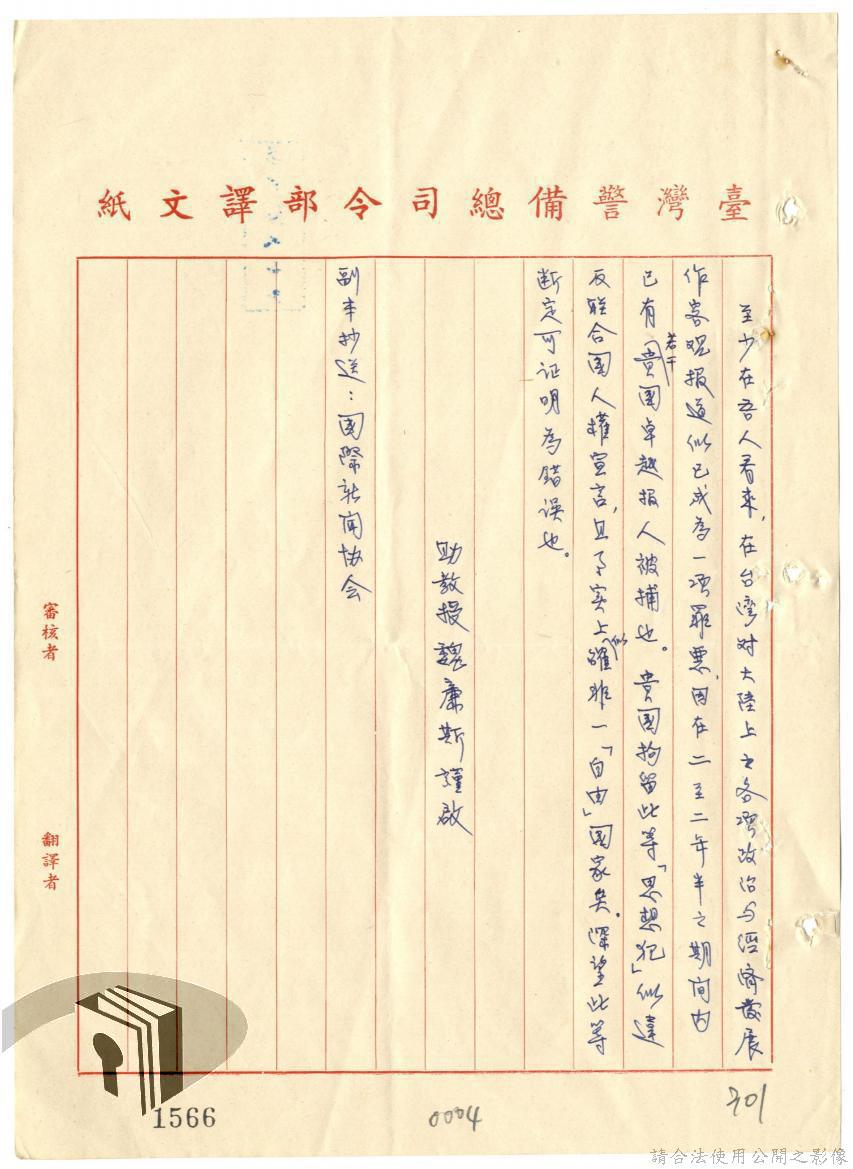 臺灣警備總司令部譯文紙
至少在吾人看來,在台灣对大陸上之各項政治与經濟發展
作客观报道似已成為一項罪惡,因在二至二年半之期间内
已有若干貴國卓越报人被捕也。貴國拘留此等「思想犯」似違
反联合國人權宣言,且事实上似確非一「自由」國家矣。深望此等
断定可证明為錯误也。
助教授 魏廉斯 謹啟
副本抄送:國際新闻协会
審核者
翻譯者
1566
0004
301
請合法使用公開之影像